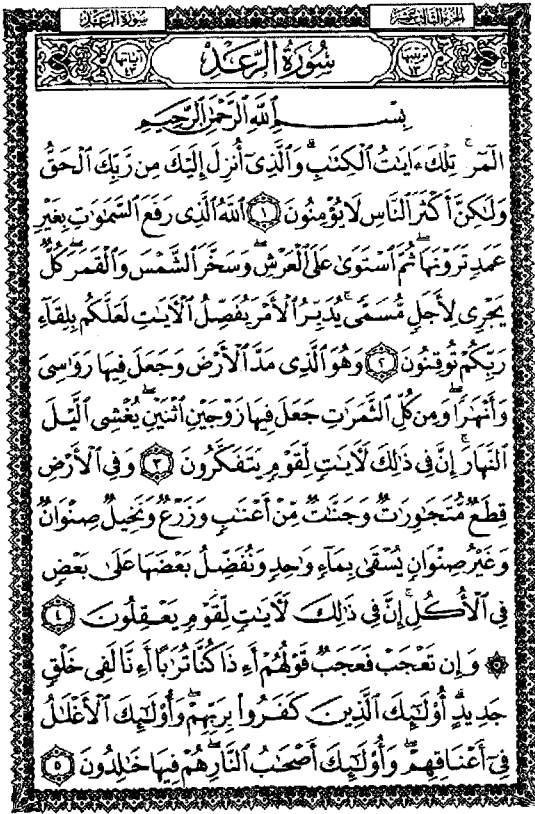 سورة الرعد
الجزء الثالث عشر
آياتها ٤٣
سُورَةُ الرَّعْدِ
ترتيبها ١٣
بِسْمِ اللَّهِ الرَّحْمَٰنِ الرَّحِيمِ
الٓمٓرۚ تِلْكَ ءَايَٰتُ ٱلْكِتَٰبِۗ وَٱلَّذِىٓ أُنزِلَ إِلَيْكَ مِن رَّبِّكَ ٱلْحَقُّ
وَلَٰكِنَّ أَكْثَرَ ٱلنَّاسِ لَا يُؤْمِنُونَ ١ ٱللَّهُ ٱلَّذِى رَفَعَ ٱلسَّمَٰوَٰتِ بِغَيْرِ
عَمَدٍ تَرَوْنَهَاۖ ثُمَّ ٱسْتَوَىٰ عَلَى ٱلْعَرْشِۖ وَسَخَّرَ ٱلشَّمْسَ وَٱلْقَمَرَۖ كُلٌّ
يَجْرِى لِأَجَلٍ مُّسَمًّىۚ يُدَبِّرُ ٱلْأَمْرَ يُفَصِّلُ ٱلْءَايَٰتِ لَعَلَّكُم بِلِقَآءِ
رَبِّكُمْ تُوقِنُونَ ٢ وَهُوَ ٱلَّذِى مَدَّ ٱلْأَرْضَ وَجَعَلَ فِيهَا رَوَٰسِىَ
وَأَنْهَٰرًاۖ وَمِن كُلِّ ٱلثَّمَرَٰتِ جَعَلَ فِيهَا زَوْجَيْنِ ٱثْنَيْنِۖ يُغْشِى ٱلَّيْلَ
ٱلنَّهَارَۚ إِنَّ فِى ذَٰلِكَ لَءَايَٰتٍ لِّقَوْمٍ يَتَفَكَّرُونَ ٣ وَفِى ٱلْأَرْضِ
قِطَعٌ مُّتَجَٰوِرَٰتٌ وَجَنَّٰتٌ مِّنْ أَعْنَٰبٍ وَزَرْعٌ وَنَخِيلٌ صِنْوَانٌ
وَغَيْرُ صِنْوَانٍ يُسْقَىٰ بِمَآءٍ وَٰحِدٍ وَنُفَضِّلُ بَعْضَهَا عَلَىٰ بَعْضٍ
فِى ٱلْأُكُلِۚ إِنَّ فِى ذَٰلِكَ لَءَايَٰتٍ لِّقَوْمٍ يَعْقِلُونَ ٤
۞ وَإِن تَعْجَبْ فَعَجَبٌ قَوْلُهُمْ أَءِذَا كُنَّا تُرَٰبًا أَءِنَّا لَفِى خَلْقٍ
جَدِيدٍۗ أُو۟لَٰٓئِكَ ٱلَّذِينَ كَفَرُوا۟ بِرَبِّهِمْۖ وَأُو۟لَٰٓئِكَ ٱلْأَغْلَٰلُ
فِىٓ أَعْنَاقِهِمْۖ وَأُو۟لَٰٓئِكَ أَصْحَٰبُ ٱلنَّارِۖ هُمْ فِيهَا خَٰلِدُونَ ٥